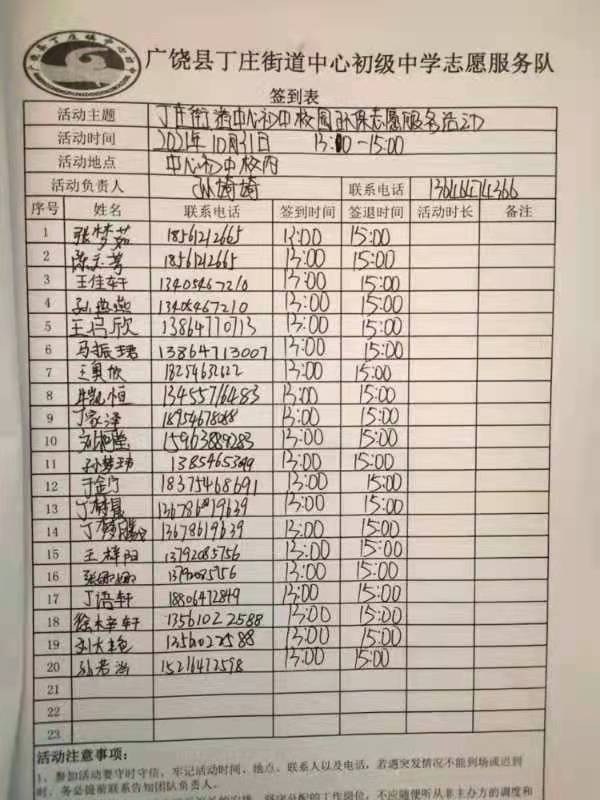 广饶县丁庄街道中心初级中学志愿服务队
签到表
活动主题 丁庄街道中心初中校园环保志愿服务活动
活动时间 2021年10月31日 13:00-15:00
活动地点 中心初中校内
活动负责人 联系电话 13646474366
序号 姓名 联系电话 签到时间 签退时间 活动时长 备注
1 张梦茹 18561212665 13:00 15:00
2 18561212665 13:00 15:00
3 王佳轩 13405467210 13:00 15:00
4 孙燕燕 13405467210 13:00 15:00
5 13864770713 13:00 15:00
6 马振珺 13864713007 13:00 15:00
7 王奥欣 13:00 15:00
8 13455716483 13:00 15:00
9 丁家泽 18954678088 13:00 15:00
10 13:00 15:00
11 孙梦玮 13:00 15:00
12 18375468691 13:00 15:00
13 丁梦晟 13678619639 13:00 15:00
14 13678619639 13:00 15:00
15 王梓阳 13792085756 13:00 15:00
16 13792085756 13:00 15:00
17 丁语轩 18806472849 13:00 15:00
18 13561022588 13:00 15:00
19 13561022588 13:00 15:00
20 15216472598 13:00 15:00
21
22
23
活动注意事项：
1、参加活动要守时守信，牢记活动时间、地点、联系人以及电话，若遇突发情况不能到场或迟到
时，务必提前联系告知团队负责人。